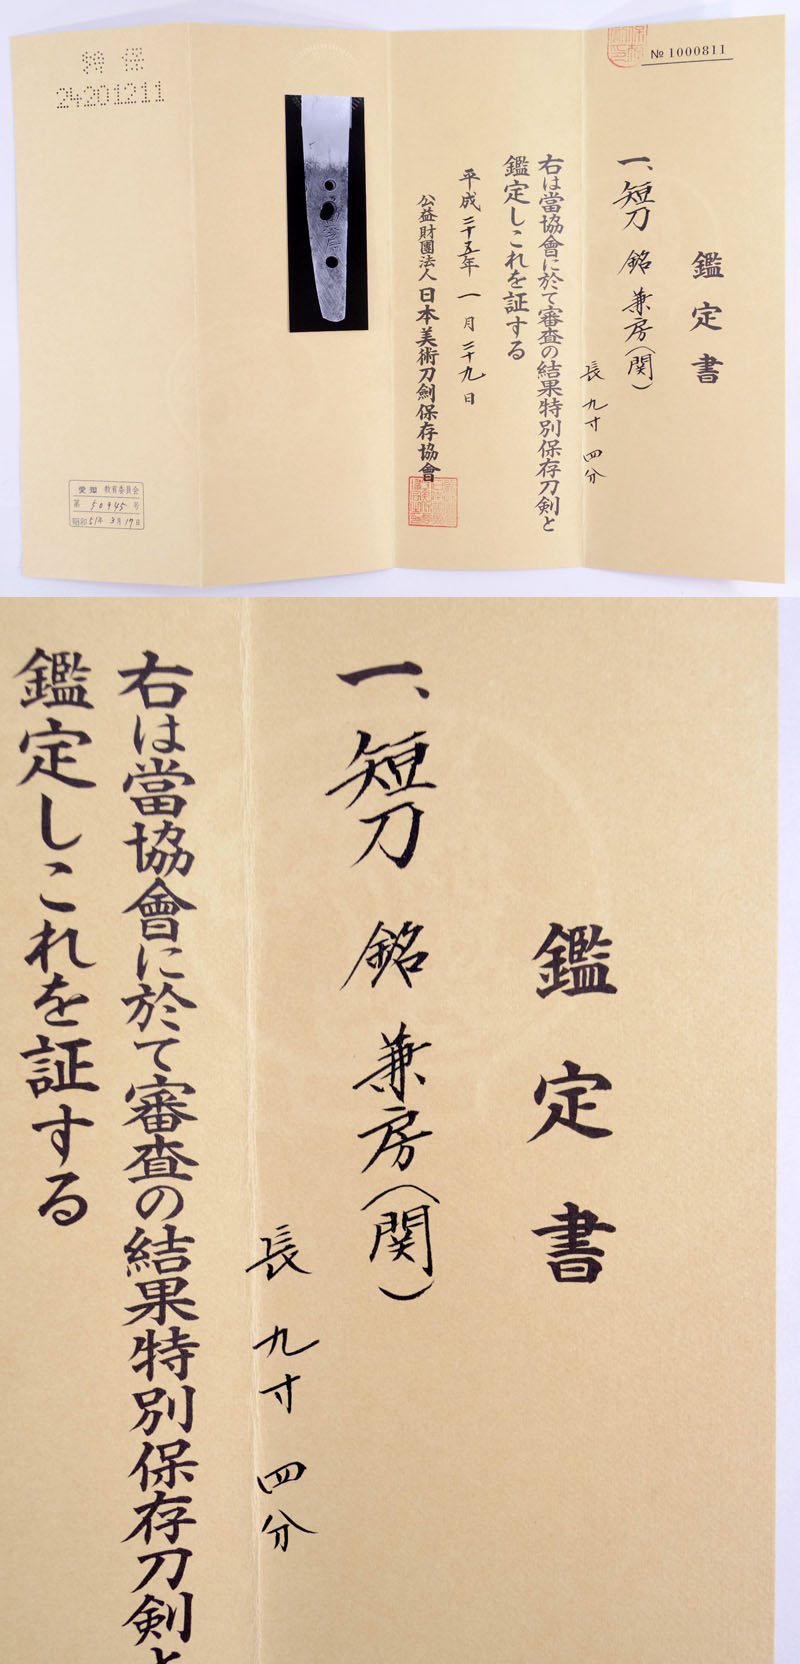 № 1000811
鑑定書
一、短刀 銘 兼房(関)
長 九寸四分
右は當協會に於て審査の結果特別保存刀剣と
鑑定しこれを証する
平成二十五年 一月二十九日
公益財團法人 日本美術刀劍保存協會
特保
24201211
愛知 教育委員会
第 50945 号
昭和51年 3月17日
鑑定書
一、短刀 銘 兼房(関)
長 九寸四分
右は當協會に於て審査の結果特別保存刀剣と
鑑定しこれを証する